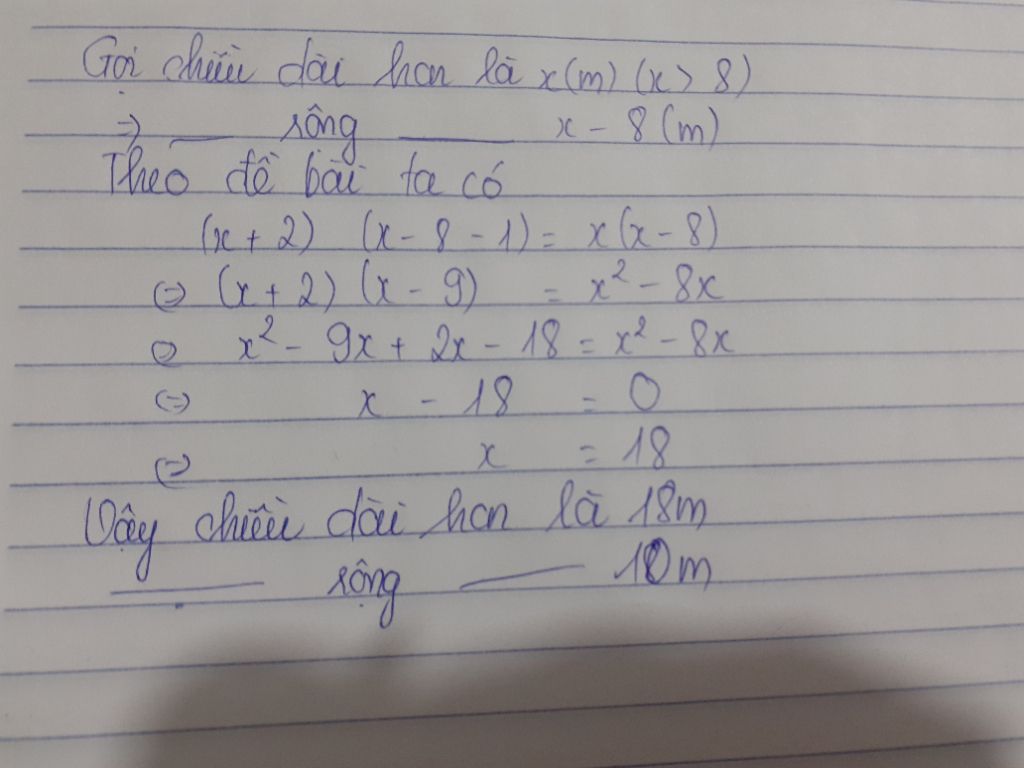 Gọi chiều dài hcn là x(m) (x > 8)
=> — rộng — x - 8 (m)
Theo đề bài ta có
(x + 2) (x - 8 - 1) = x(x - 8)
<=> (x + 2) (x - 9) = x² - 8x
<=> x² - 9x + 2x - 18 = x² - 8x
<=> x - 18 = 0
<=> x = 18
Vậy chiều dài hcn là 18m
— rộng — 10m